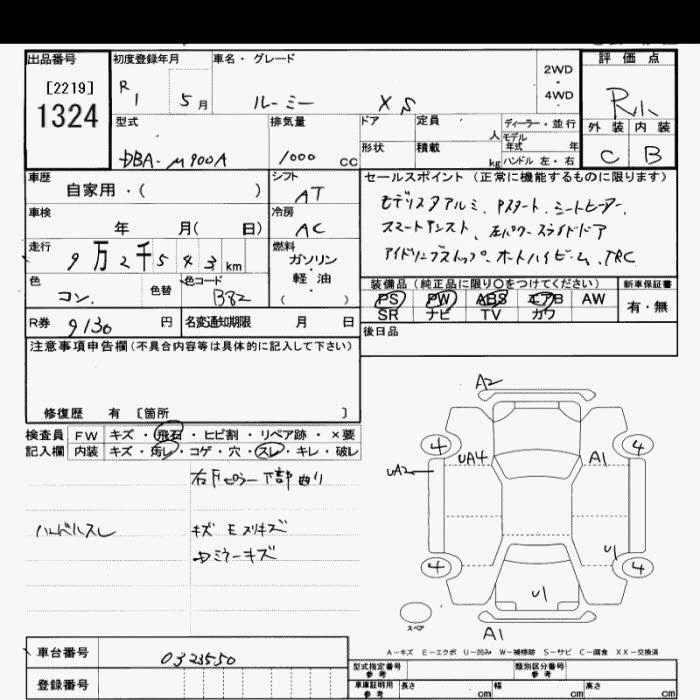 出品番号
[2219]
1324
初度登録年月
R1 5月
車名・グレード
ルーミー XS
2WD
4WD
評価点
R
外装 内装
C B
型式
DBA-M900A
排気量
1000 cc
ドア
定員
人
形状
積載
kg
ディーラー・並行
モデル
年式 年
ハンドル 左・右
車歴
自家用・( )
シフト
AT
車検
年 月( 日)
冷房
AC
走行
9万2千543km
燃料
ガソリン
・
軽油
( )
色
コン.
色替
色コード
B82
R券
9130円
名変通知期限 月 日
セールスポイント(正常に機能するものに限ります)
モデリスタアルミ、Pスタート、シートヒーター、
スマートアシスト、左パワースライドドア
アイドリングストップ、オートハイビーム、TRC
装備品(純正品に限り○をつけてください)
新車保証書
PS PW ABS エアB AW
SR ナビ TV カワ
有・無
後日品
注意事項申告欄(不具合内容等は具体的に記入して下さい)
修復歴 有 [箇所 ]
検査員
記入欄
FW キズ・飛石・ヒビ割・リペア跡・×要
内装 キズ・汚レ・コゲ・穴・スレ・キレ・破レ
右Fピラー下部曲り
ハンドルスレ
キズ
ミラーキズ
A2
4
4
UA2
UA4
A1
4
U1
4
U1
スペア
A1
A-キズ E-エクボ U-凹み W-補修跡 S-サビ C-腐食 XX-交換済
車台番号
0323550
登録番号
型式指定番号
参考
類別区分番号
参考
車庫証明用
参考
長さ cm
幅 cm
高さ cm